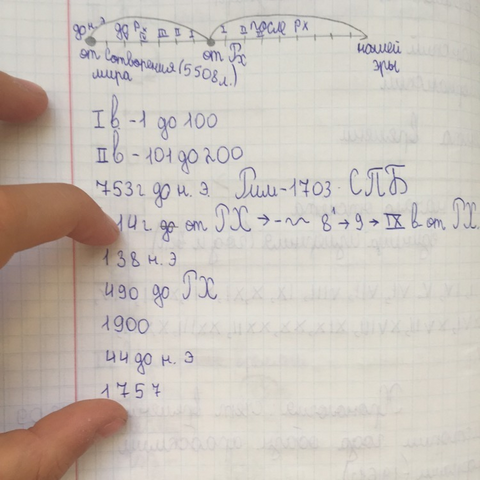 до н.э до Р IV III II I I II после РХ
от Сотворения (5508 л.) от Рх нашей
мира эры
I в - 1 до 100
II в - 101 до 200
753 г до н. э. Рим - 1703 - СПБ
14 г от РХ → 8 → 9 → IX в от РХ.
138 н. э
490 до РХ
1900
44 до н. э
1757